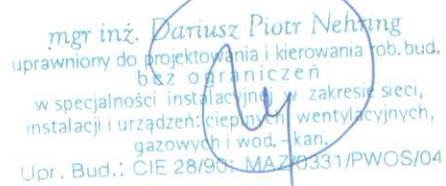 mgr inż. Dariusz Piotr Nehring
uprawniony do projektowania i kierowania rob. bud.
bez ograniczeń
w specjalności instalacyjnej w zakresie sieci,
instalacji i urządzeń: cieplnych wentylacyjnych,
gazowych i wod. - kan.
Upr. Bud.: CIE 28/90; MAZ/0331/PWOS/04